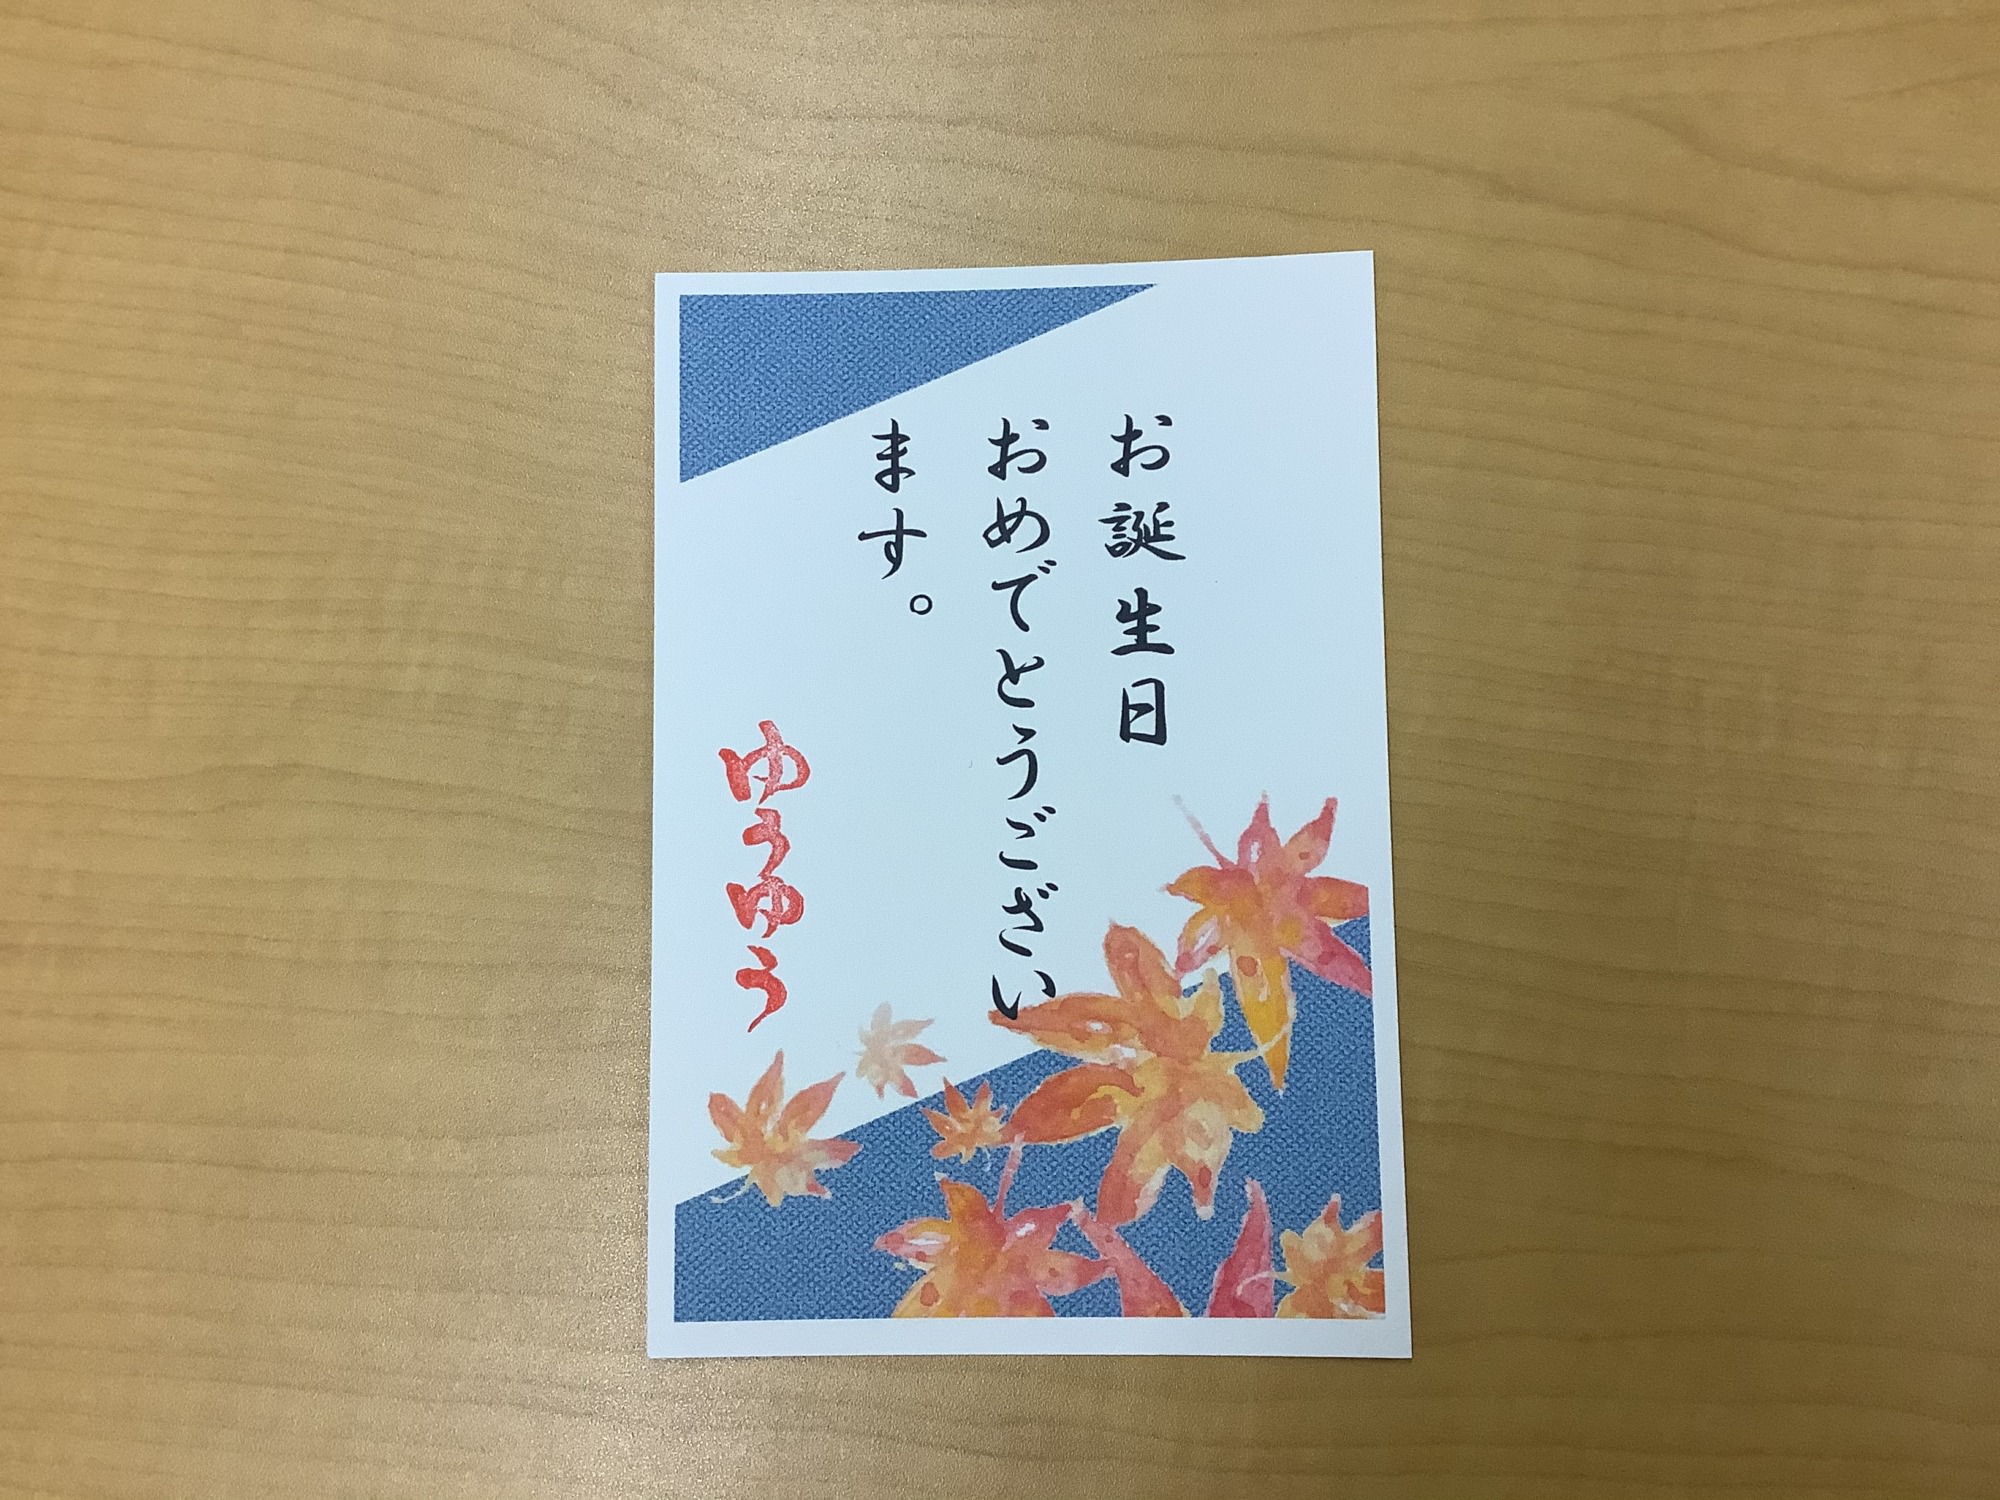 お誕生日
おめでとうござい
ます。
ゆうゆう